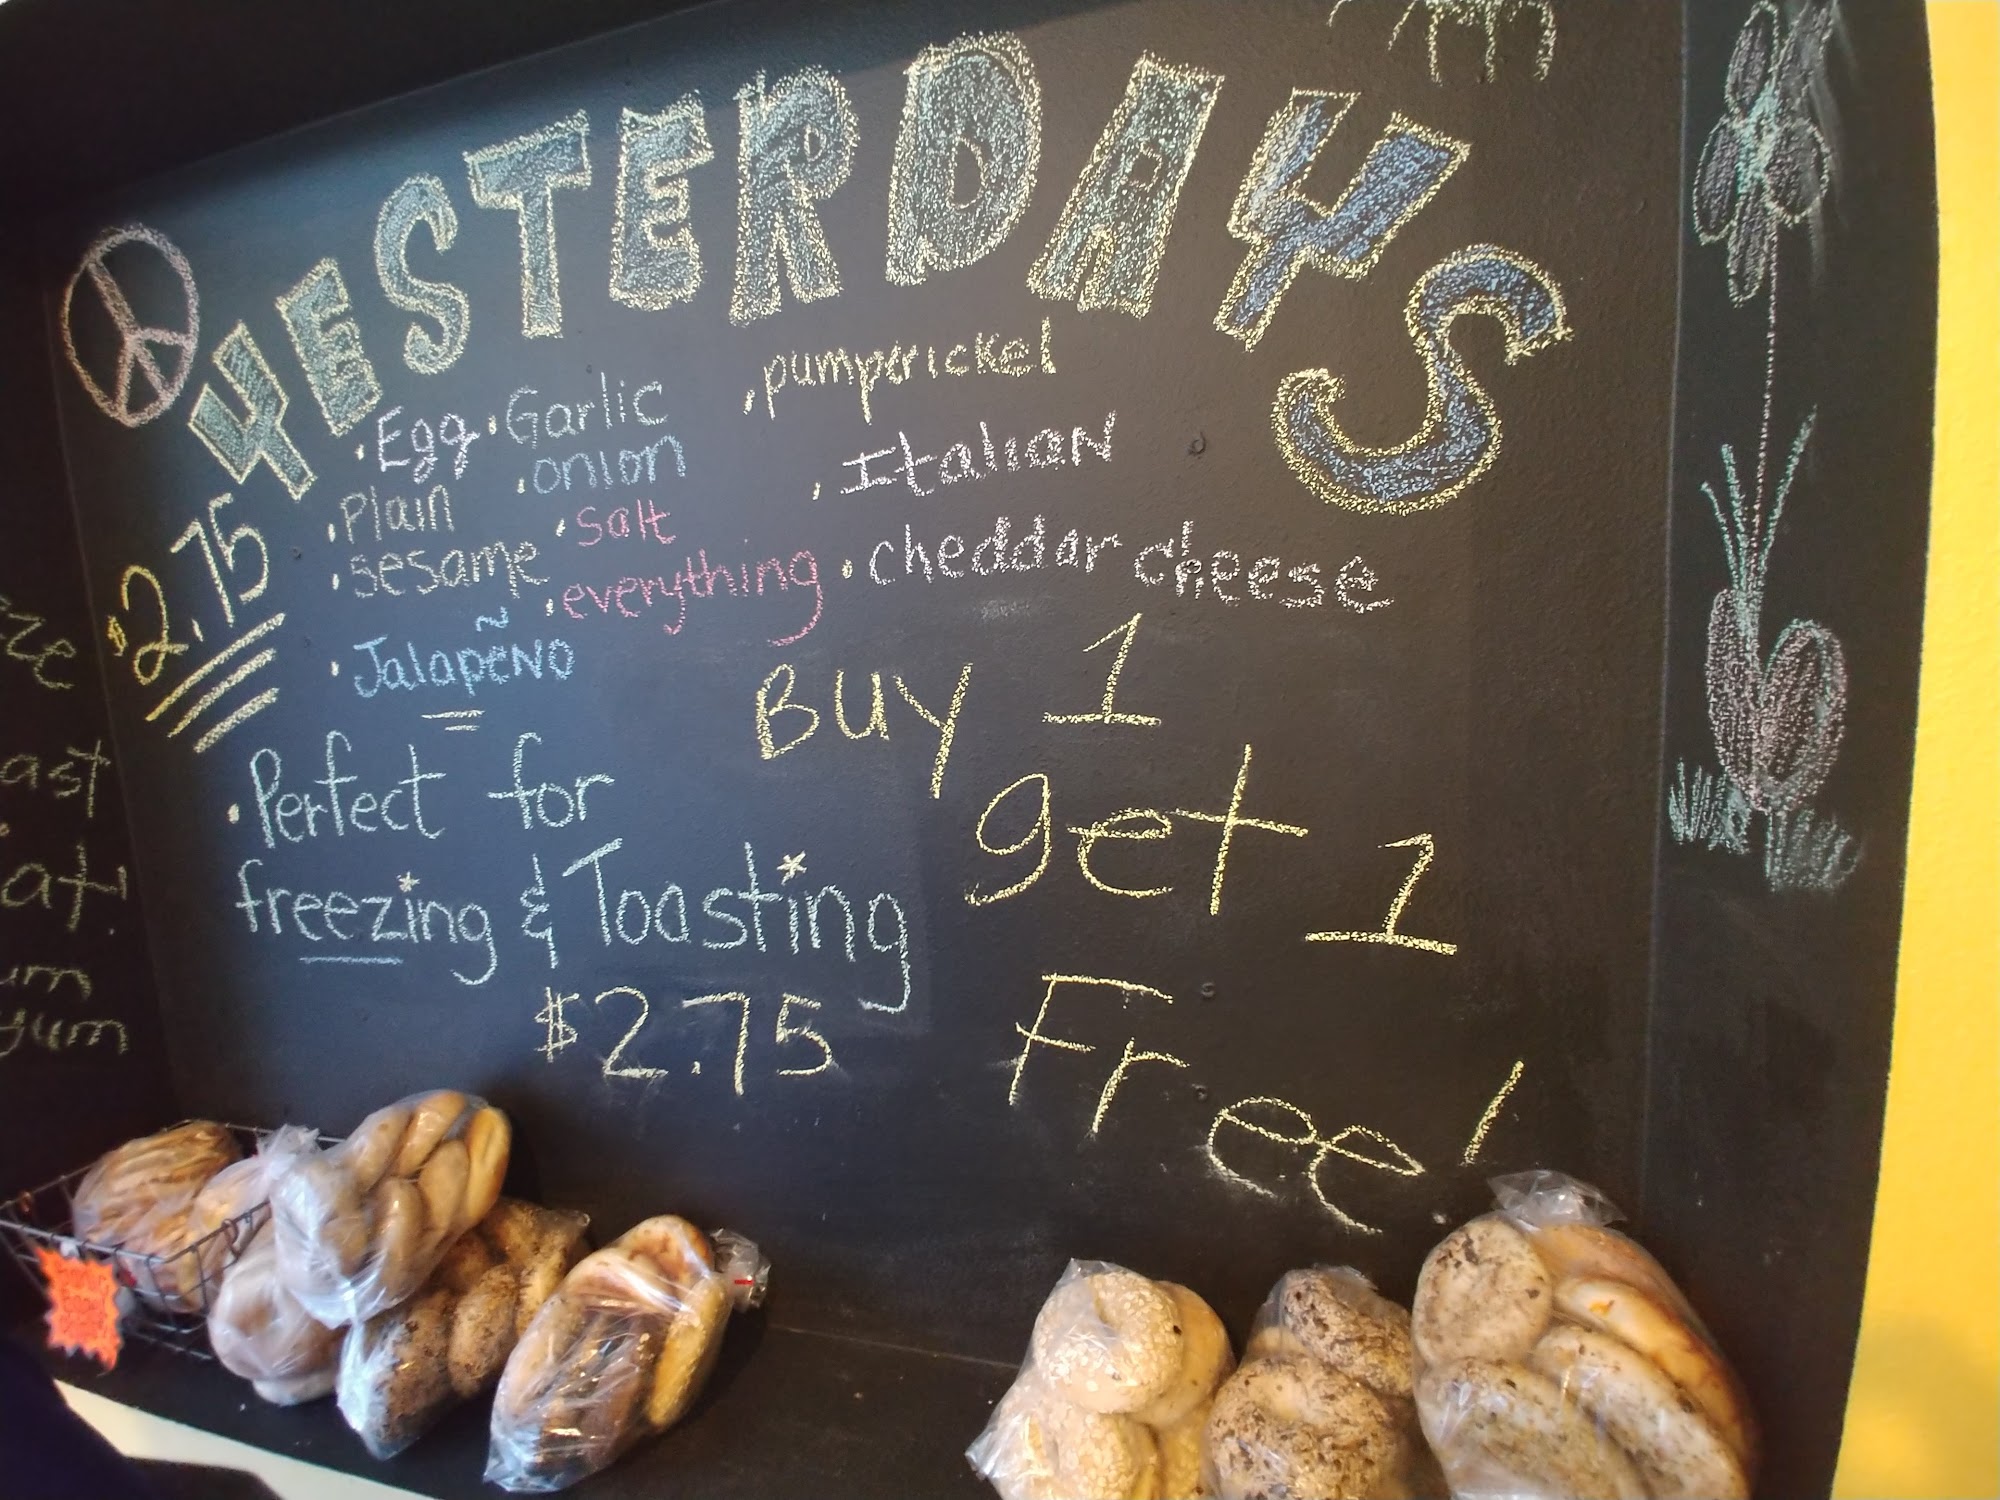 YESTERDAYS
$2.75
• Egg
• Plain
• sesame
• Jalapeño
• Garlic
• onion
• salt
• everything
• pumperickel
• Italian
• cheddar cheese
• Perfect for
freezing & Toasting
$2.75
Buy 1
get 1
Free!
ast
at!
um
yum